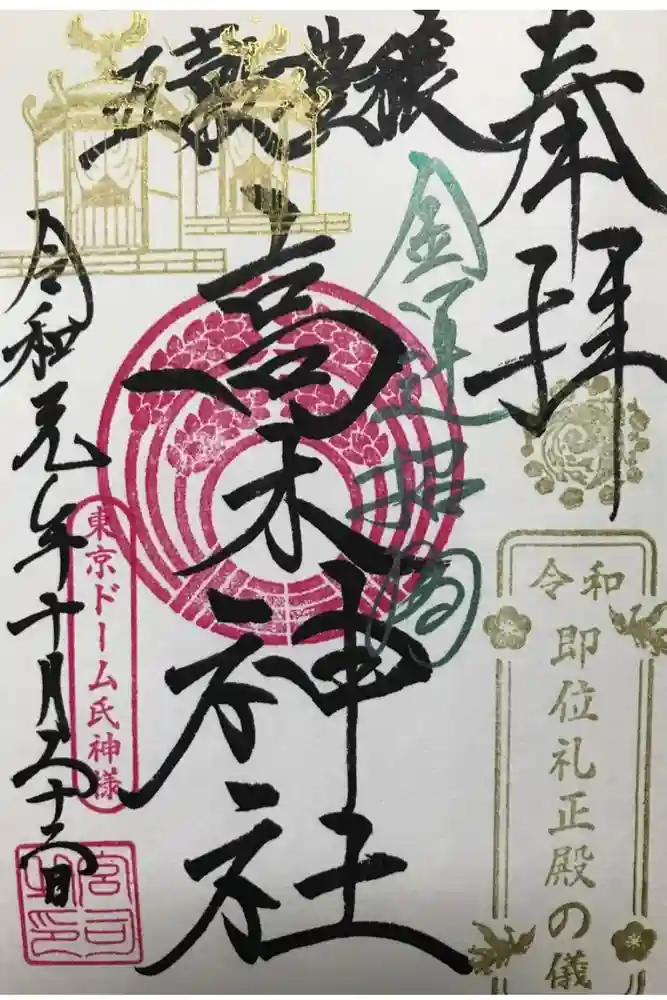 奉拝
令和
即位礼正殿の儀
金運招福
五穀豊穣
高木神社
令和元年十月二十二日
東京ドーム氏神様
宮司之印